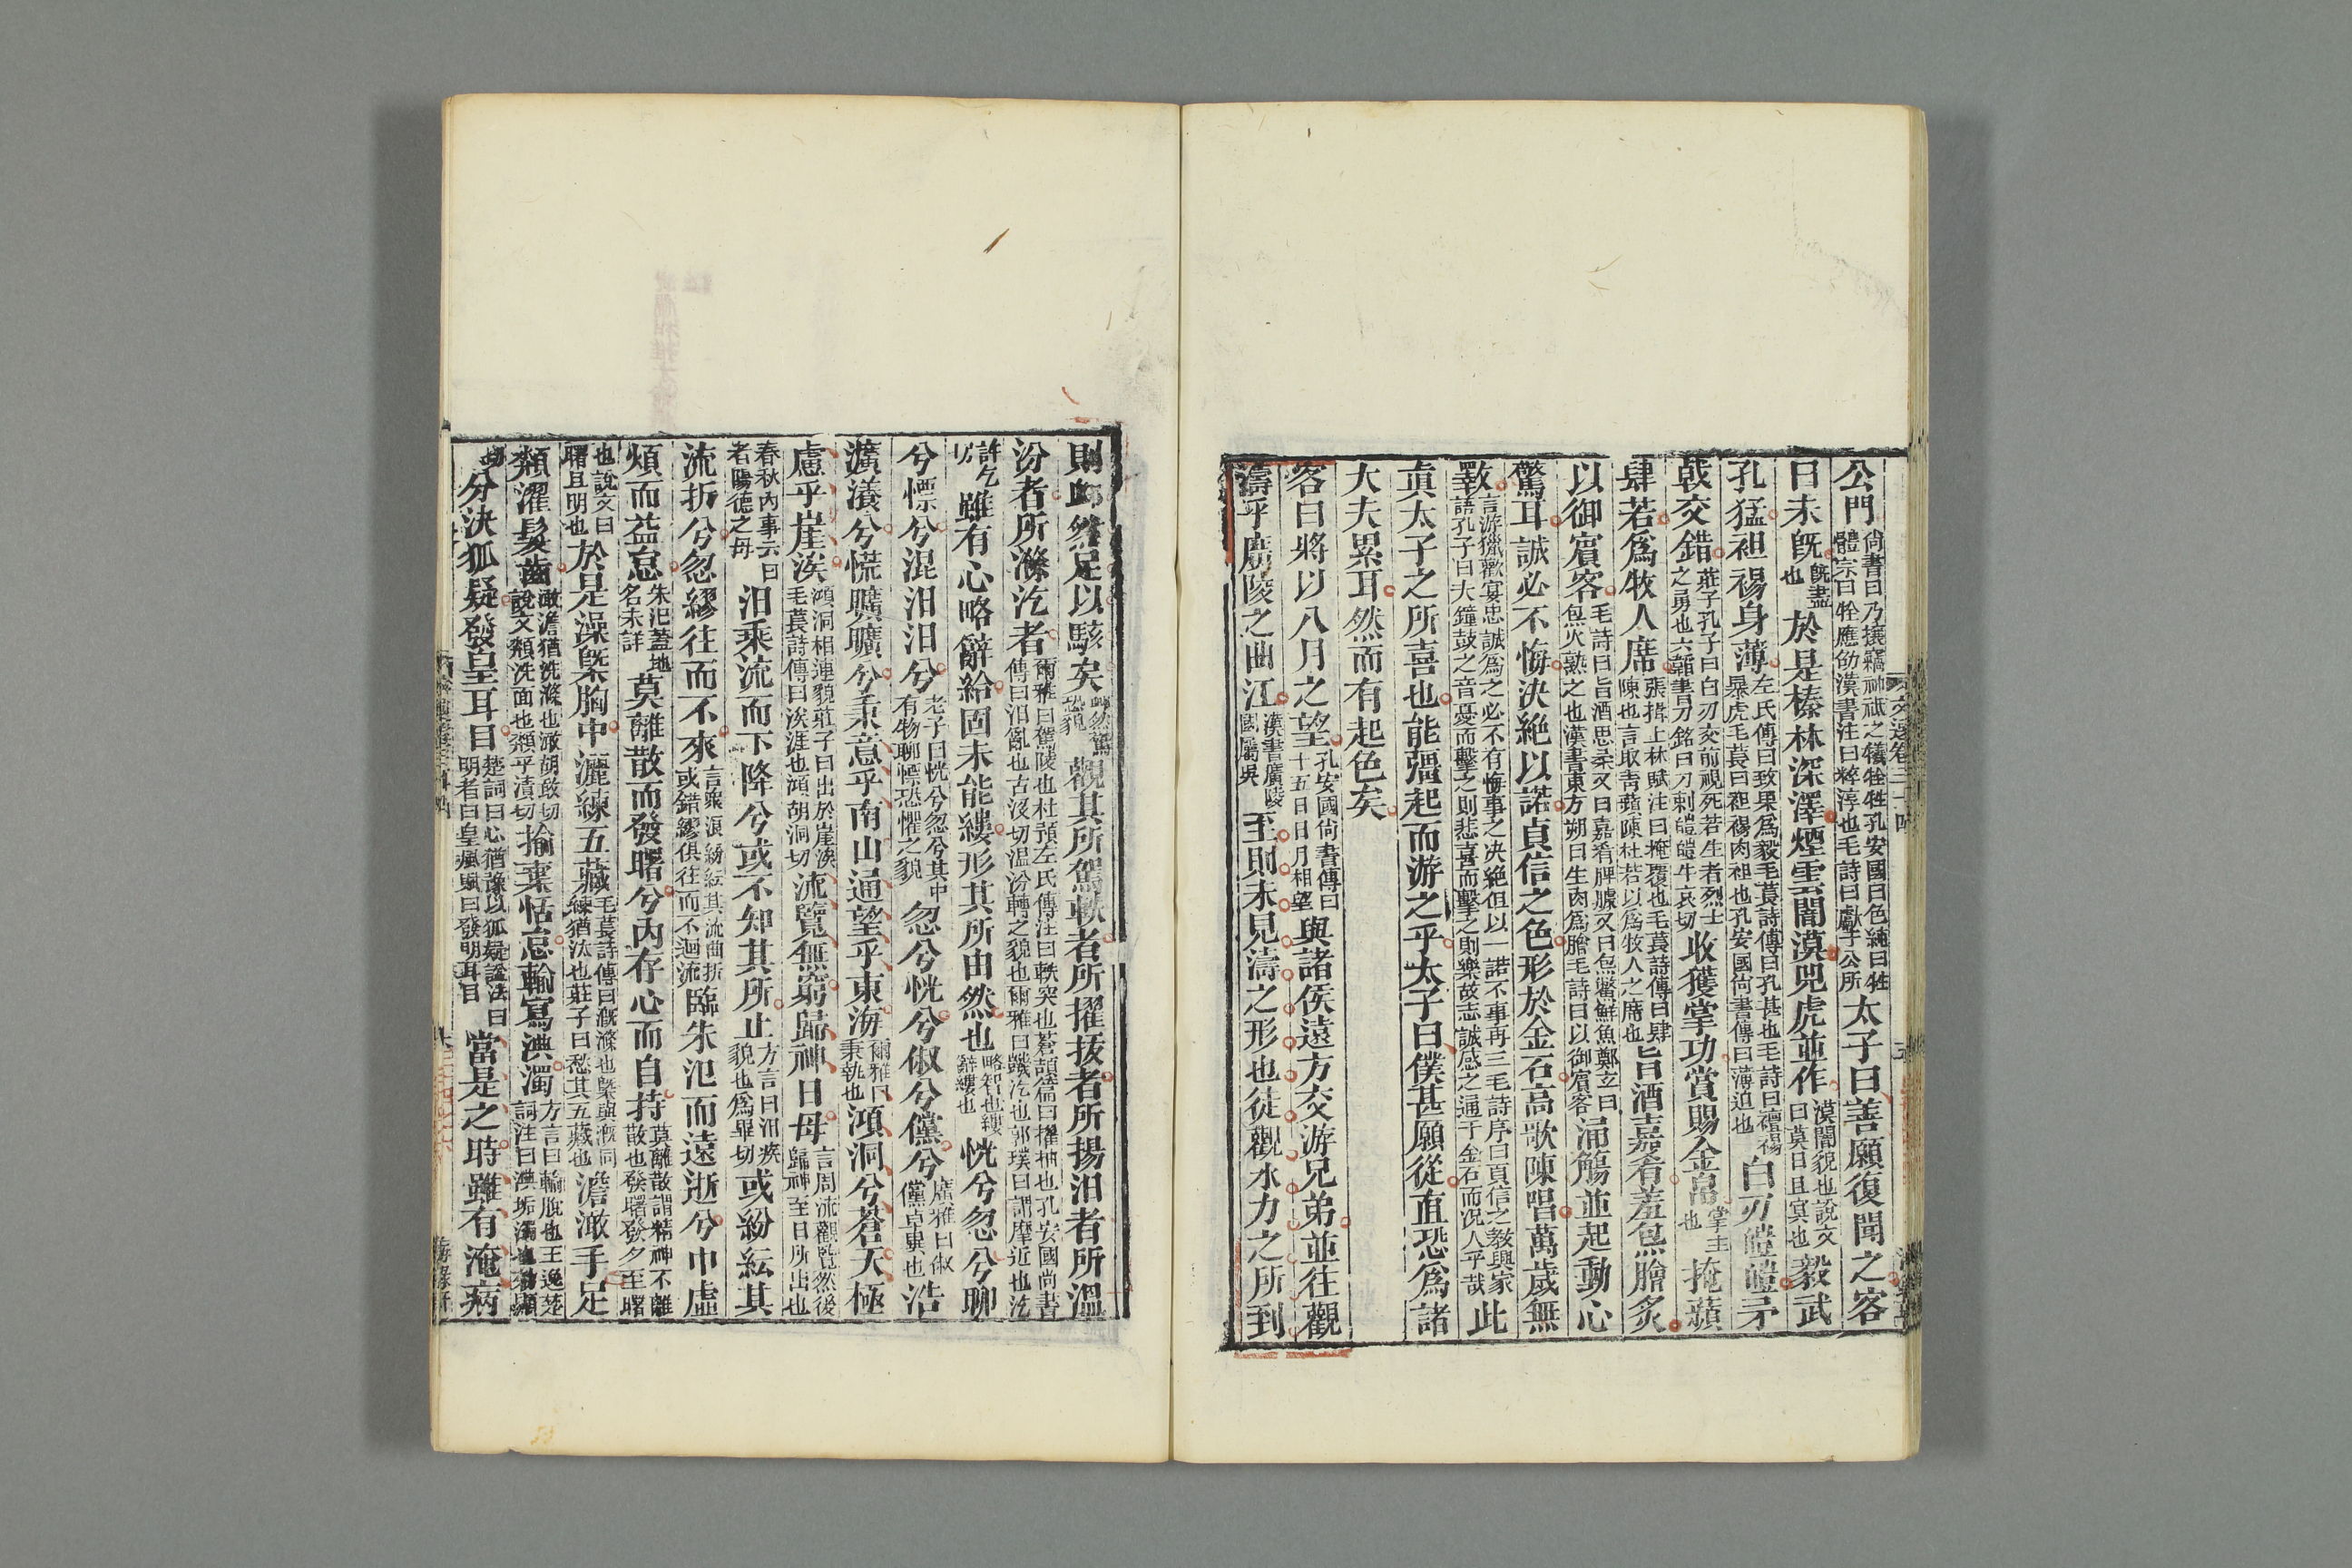 公門尚書曰乃攘竊神祇之犧牷牲孔安國曰色純曰牲體完曰牷應劭漢書注曰粹淳也毛詩曰獻于公所太子曰善願復聞之客
曰未旣旣盡也於是榛林深澤煙雲闇漠兕虎並作漠闇貌也說文曰莫日且冥也毅武
孔猛袒裼身薄左氏傳曰致果爲毅毛萇詩傳曰孔甚也毛詩曰襢裼暴虎毛萇曰袒裼肉袒也孔安國尚書傳曰薄迫也白刃磑磑矛
戟交錯莊子孔子曰白刃交前視死若生者烈士之勇也六韜書刀銘曰刀利磑磑牛哀切收獲掌功賞賜金帛掌主也掩蘋
肆若爲牧人席張揖上林賦注曰掩覆也毛萇詩傳曰肆陳也言取靑蘋陳杜若以爲牧人之席也旨酒嘉肴羞炰膾炙
以御賓客毛詩曰旨酒思柔又曰嘉肴脾臄又曰炰鼈鮮魚鄭玄曰炰火熟之也漢書東方朔曰生肉爲膾毛詩曰以御賓客涌觴並起動心
驚耳誠必不悔決絕以諾貞信之色形於金石高歌陳唱萬歲無
斁言游獵歡宴忠誠爲之必不有悔事之決絕但以一諾不事再三毛詩序曰貞信之敎興家語孔子曰夫鐘鼓之音憂而擊之則悲喜而擊之則樂故志誠感之通于金石而況人乎哉此
眞太子之所喜也能彊起而游之乎太子曰僕甚願從直恐爲諸
大夫累耳然而有起色矣
客曰將以八月之望孔安國尚書傳曰十五日日月相望與諸侯遠方交游兄弟並往觀
濤乎廣陵之曲江漢書廣陵國屬吳至則未見濤之形也徒觀水力之所到
則卹然足以駭矣卹然驚恐貌觀其所駕軼者所擢拔者所揚汨者所溫
汾者所滌汔者爾雅曰駕陵也杜預左氏傳注曰軼突也蒼頡篇曰擢抽也孔安國尚書傳曰汨亂也古沒切溫汾轉之貌也爾雅曰饑汔也郭璞曰謂摩近也汔
許乞切雖有心略辭給固未能縷形其所由然也略智也縷辭縷也怳兮忽兮聊
兮慓兮混汨汨兮老子曰怳兮忽兮其中有物聊慓恐懼之貌忽兮慌兮俶兮儻兮廣雅曰俶儻卓異也浩
瀇瀁兮慌曠曠兮秉意乎南山通望乎東海爾雅曰秉執也澒洞兮蒼天極
慮乎崖涘澒洞相連貌莊子曰出於崖涘毛萇詩傳曰涘涯也澒胡洞切流覽無窮歸神日母言周流觀覽然後歸神至日所出也
春秋內事云日者陽德之母汨乘流而下降兮或不知其所止方言曰汨疾貌也爲畢切或紛紜其
流折兮忽繆往而不來言衆浪紛紜其流曲折或錯繆俱往而不迴流臨朱汜而遠逝兮中虛
煩而益怠朱汜蓋地名未詳莫離散而發曙兮內存心而自持莫離散謂精神不離散也發曙發夕至曙
也說文曰曙旦明也於是澡槩胸中灑練五藏毛萇詩傳曰漑滌也槩與漑同練猶汰也莊子曰愁其五藏也澹澉手足
頮濯髮齒澉澹猶洗滌也澉胡敢切說文頮洗面也頮乎潰切揄棄恬怠輸寫淟濁方言曰輸脫也王逸楚詞注曰淟垢濁也
分決狐疑發皇耳目楚詞曰心猶豫以狐疑諡法曰明者曰皇廣雅曰發明耳目當是之時雖有淹病
文選卷三十四